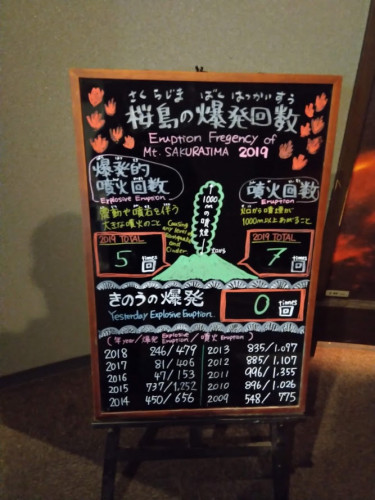 さくらじま ばくはつかいすう
桜島の爆発回数
Eruption Freqency of
Mt. SAKURAJIMA 2019
爆発的
噴火回数
Explosive Eruption
震動や噴石を伴う
大きな噴火のこと
Causing
any tremor
and
Cinder.
2019 TOTAL
5 times
回
1000mの噴煙
噴火回数
Eruption
火口から噴煙が
1000m以上あがること
2019 TOTAL
7 times
回
きのうの爆発
Yesterday Explosive Eruption.
0 times
回
(年year/爆発 Explosive Eruption/噴火 Eruption)
2018 246/479
2017 81/406
2016 47/153
2015 737/1,252
2014 450/656
2013 835/1,097
2012 885/1,107
2011 996/1,355
2010 896/1,026
2009 548/775